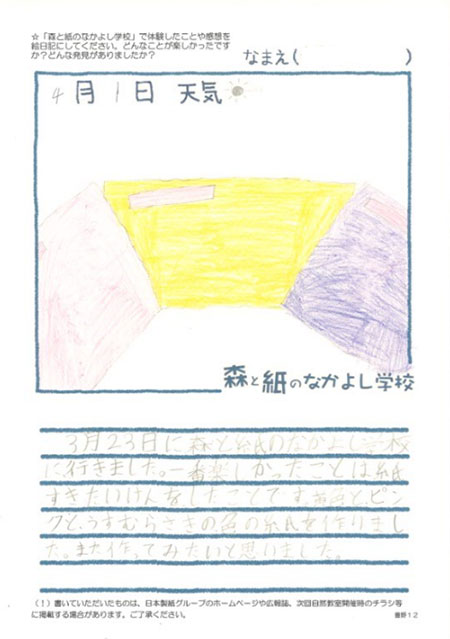 ☆「森と紙のなかよし学校」で体験したことや感想を
絵日記にしてください。どんなことが楽しかったです
か？どんな発見がありましたか？
なまえ( )
4月1日 天気
森と紙のなかよし学校
3月23日に森と紙のなかよし学校
に行きました。一番楽しかったことは紙
すきたいけんをしたことです。黄色とピン
クと、うすむらさきの色の紙を作りまし
た。また作ってみたいと思いました。
(！) 書いていただいたものは、日本製紙グループのホームページや広報誌、次回自然教室開催時のチラシ等
に掲載する場合があります。ご了承ください。
菅野12